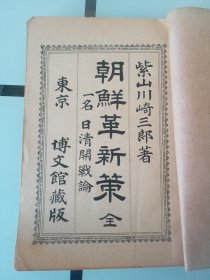 紫山川崎三郎著
朝鮮革新策 全
一名 日清開戦論
東京 博文館蔵版